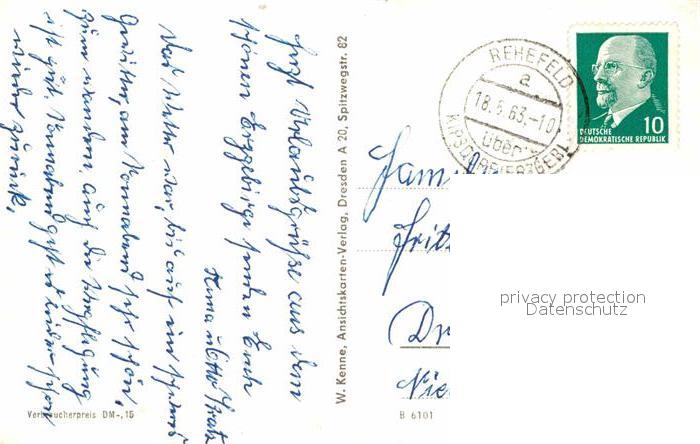 Herzl. Urlaubsgrüße aus dem
schönen Erzgebirge senden Euch
Das Wetter war, bis auf ein schweres
Gewitter, am Sonnabend sehr schön,
zum wandern. Auch die Verpflegung
ist gut. Sonnabend geht es leider schon
wieder zurück.
Verbraucherpreis DM -,15
W. Kenne, Ansichtskarten-Verlag, Dresden A 20, Spitzwegstr. 82
B 6101
REHEFELD
a
18.6.63.-10
über
KIPSDORF (ERZGEB)
10
DEUTSCHE
DEMOKRATISCHE REPUBLIK
Fam
Fritz
Dr
Nie
privacy protection
Datenschutz